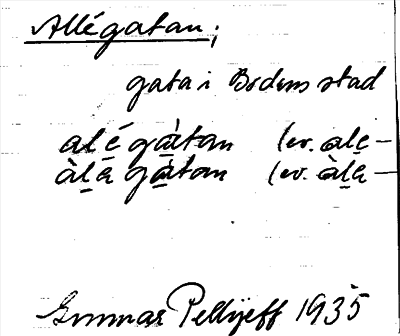 Allégatan;
gata i Bodens stad
alé̱gå̱tan (ev. ale̱—
àḻa̱gå̱tan (ev. àḻa̱—
Gunnar Pellijeff 1935